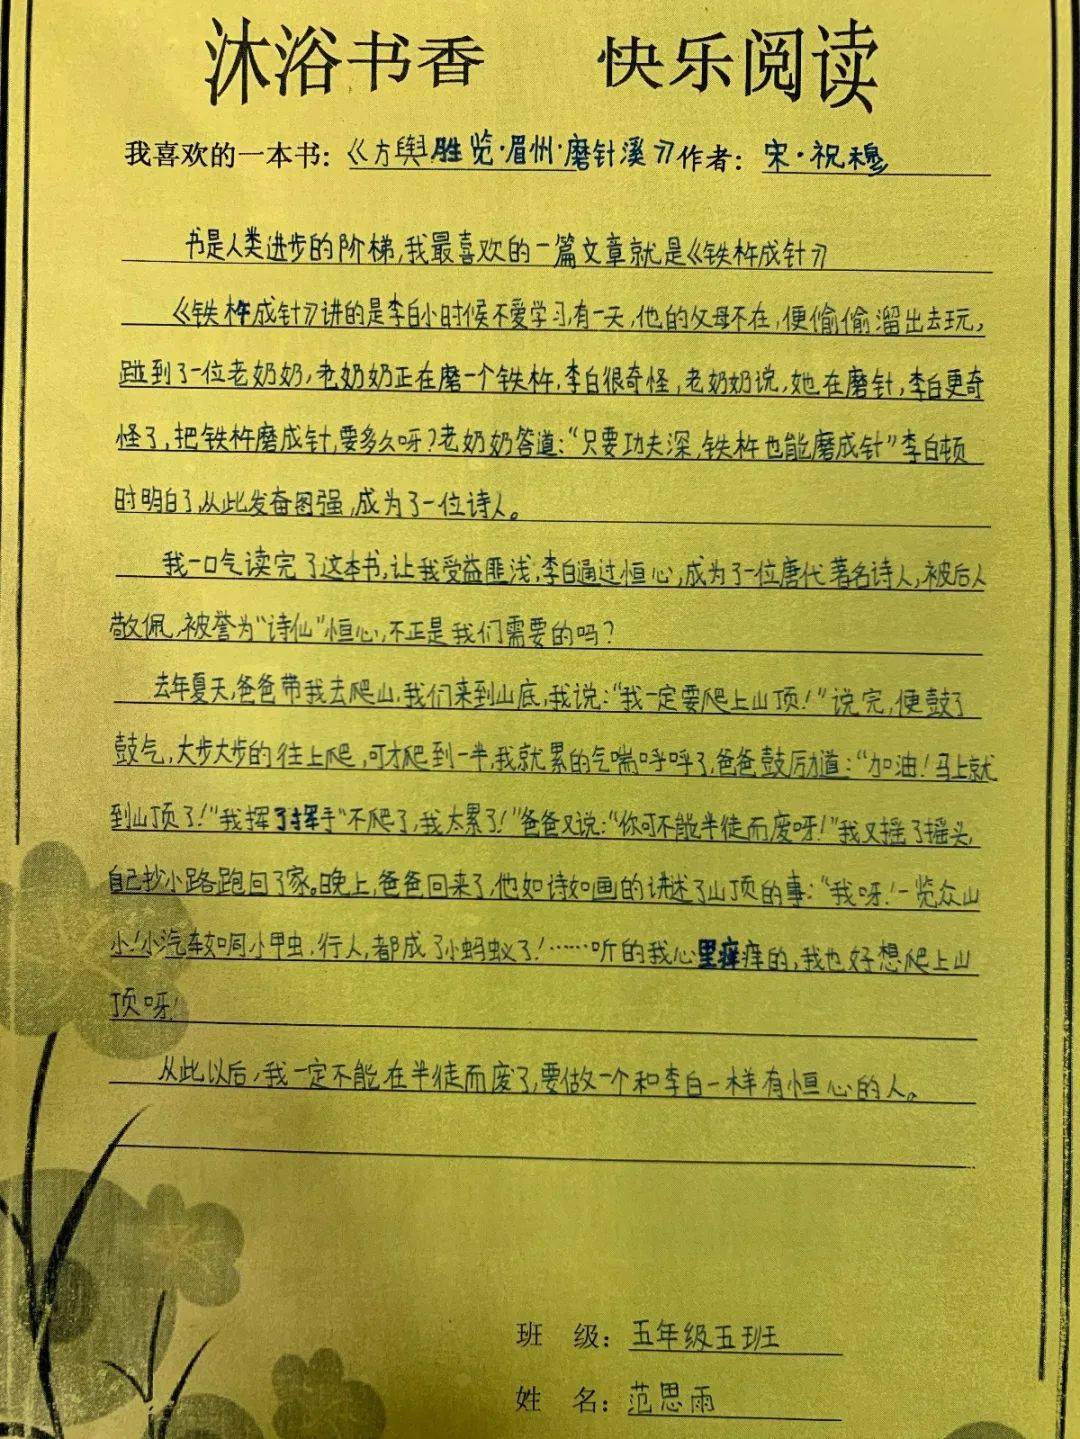 沐浴书香 快乐阅读
我喜欢的一本书：《方舆胜览·眉州·磨针溪》作者：宋·祝穆
书是人类进步的阶梯,我最喜欢的一篇文章就是《铁杵成针》
《铁杵成针》讲的是李白小时候不爱学习,有一天,他的父母不在,便偷偷溜出去玩,
碰到了一位老奶奶,老奶奶正在磨一个铁杵,李白很奇怪,老奶奶说,她在磨针,李白更奇
怪了,把铁杵磨成针,要多久呀?老奶奶答道:“只要功夫深,铁杵也能磨成针”李白顿
时明白了,从此发奋图强,成为了一位诗人。
我一口气读完了这本书,让我受益匪浅,李白通过恒心,成为了一位唐代著名诗人,被后人
敬佩,被誉为“诗仙”恒心,不正是我们需要的吗?
去年夏天,爸爸带我去爬山,我们来到山底,我说:“我一定要爬上山顶!”说完,便鼓了
鼓气,大步大步的往上爬,可才爬到一半,我就累的气喘呼呼了,爸爸鼓厉道:“加油!马上就
到山顶了!”我挥了挥手“不爬了,我太累了!”爸爸又说:“你可不能半徒而废呀!”我又摇了摇头,
自己抄小路跑回了家。晚上,爸爸回来了,他如诗如画的讲述了山顶的事:“我呀!一览众山
小!小汽车如同小甲虫,行人,都成了小蚂蚁了!……听的我心里痒痒的,我也好想爬上山
顶呀!
从此以后,我一定不能在半徒而废了,要做一个和李白一样有恒心的人。
班 级：五年级五班
姓 名：范思雨